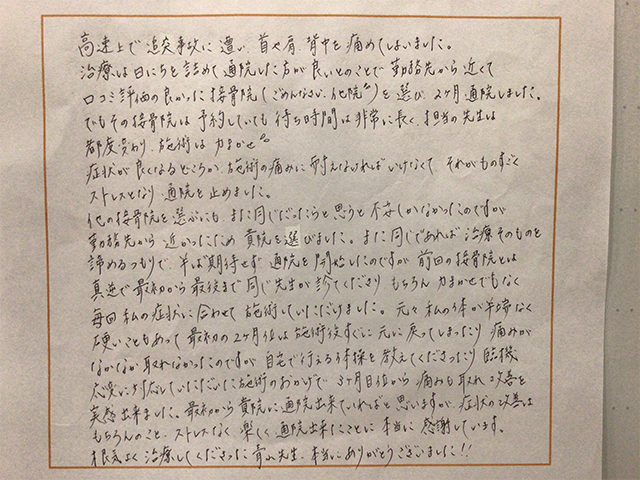 高速上で追突事故に遭い、首や肩、背中を痛めてしまいました。
治療は日にちを詰めて通院した方が良いとのことで勤務先から近くて
口コミ評価の良かった接骨院（ごめんなさい、他院^^）を選び、2ヶ月通院しました。
でもその接骨院は予約していても待ち時間は非常に長く、担当の先生は
都度変わり、施術は力まかせ^^
症状が良くなるどころか、施術の痛みに耐えなければいけなくて、それがものすごく
ストレスとなり通院を止めました。
他の接骨院を選ぶにも、また同じだったらと思うと不安しかなかったのですが
勤務先から近かったため貴院を選びました。また同じであれば治療そのものを
諦めるつもりで、半ば期待せず通院を開始したのですが前回の接骨院とは
真逆で最初から最後まで同じ先生が診てくださり、もちろん力まかせでもなく
毎回私の症状に合わせて施術していただけました。元々私の体が半端なく
硬いこともあって最初の2ヶ月位は施術後すぐに元に戻ってしまったり、痛みが
なかなか取れなかったのですが自宅で行える体操を教えてくださったり臨機
応変に対応していただいた施術のおかげで3ヶ月目位から痛みも取れ改善を
実感出来ました。最初から貴院に通院出来ていればと思いますが、症状の改善は
もちろんのこと、ストレスなく楽しく通院出来たことに本当に感謝しています。
根気よく治療してくださった 先生、本当にありがとうございました!!